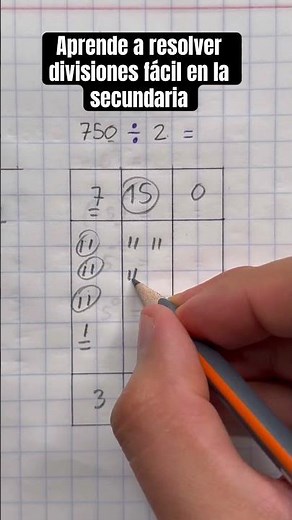 Aprende a resolver
divisiones fácil en la
secundaria
750 ÷ 2 =
7 15 0
11 11 11
11 11
11
1
3